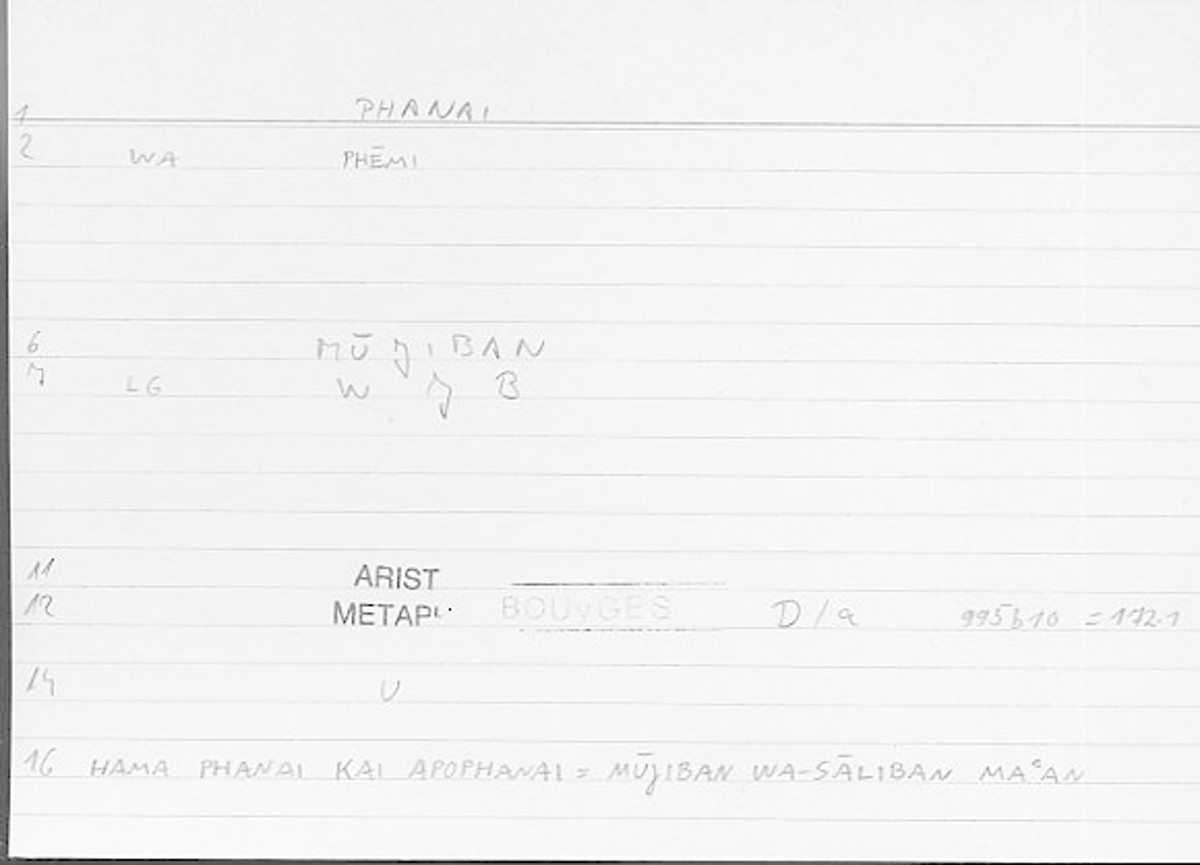 1 PHANAI
2 WA PHĒMI
6 MŪJIBAN
7 LG W J B
11 ARIST
12 METAPH BOUYGES D/a 995b10 = 172.1
14 U
16 HAMA PHANAI KAI APOPHANAI = MŪJIBAN WA-SĀLIBAN MAʿAN